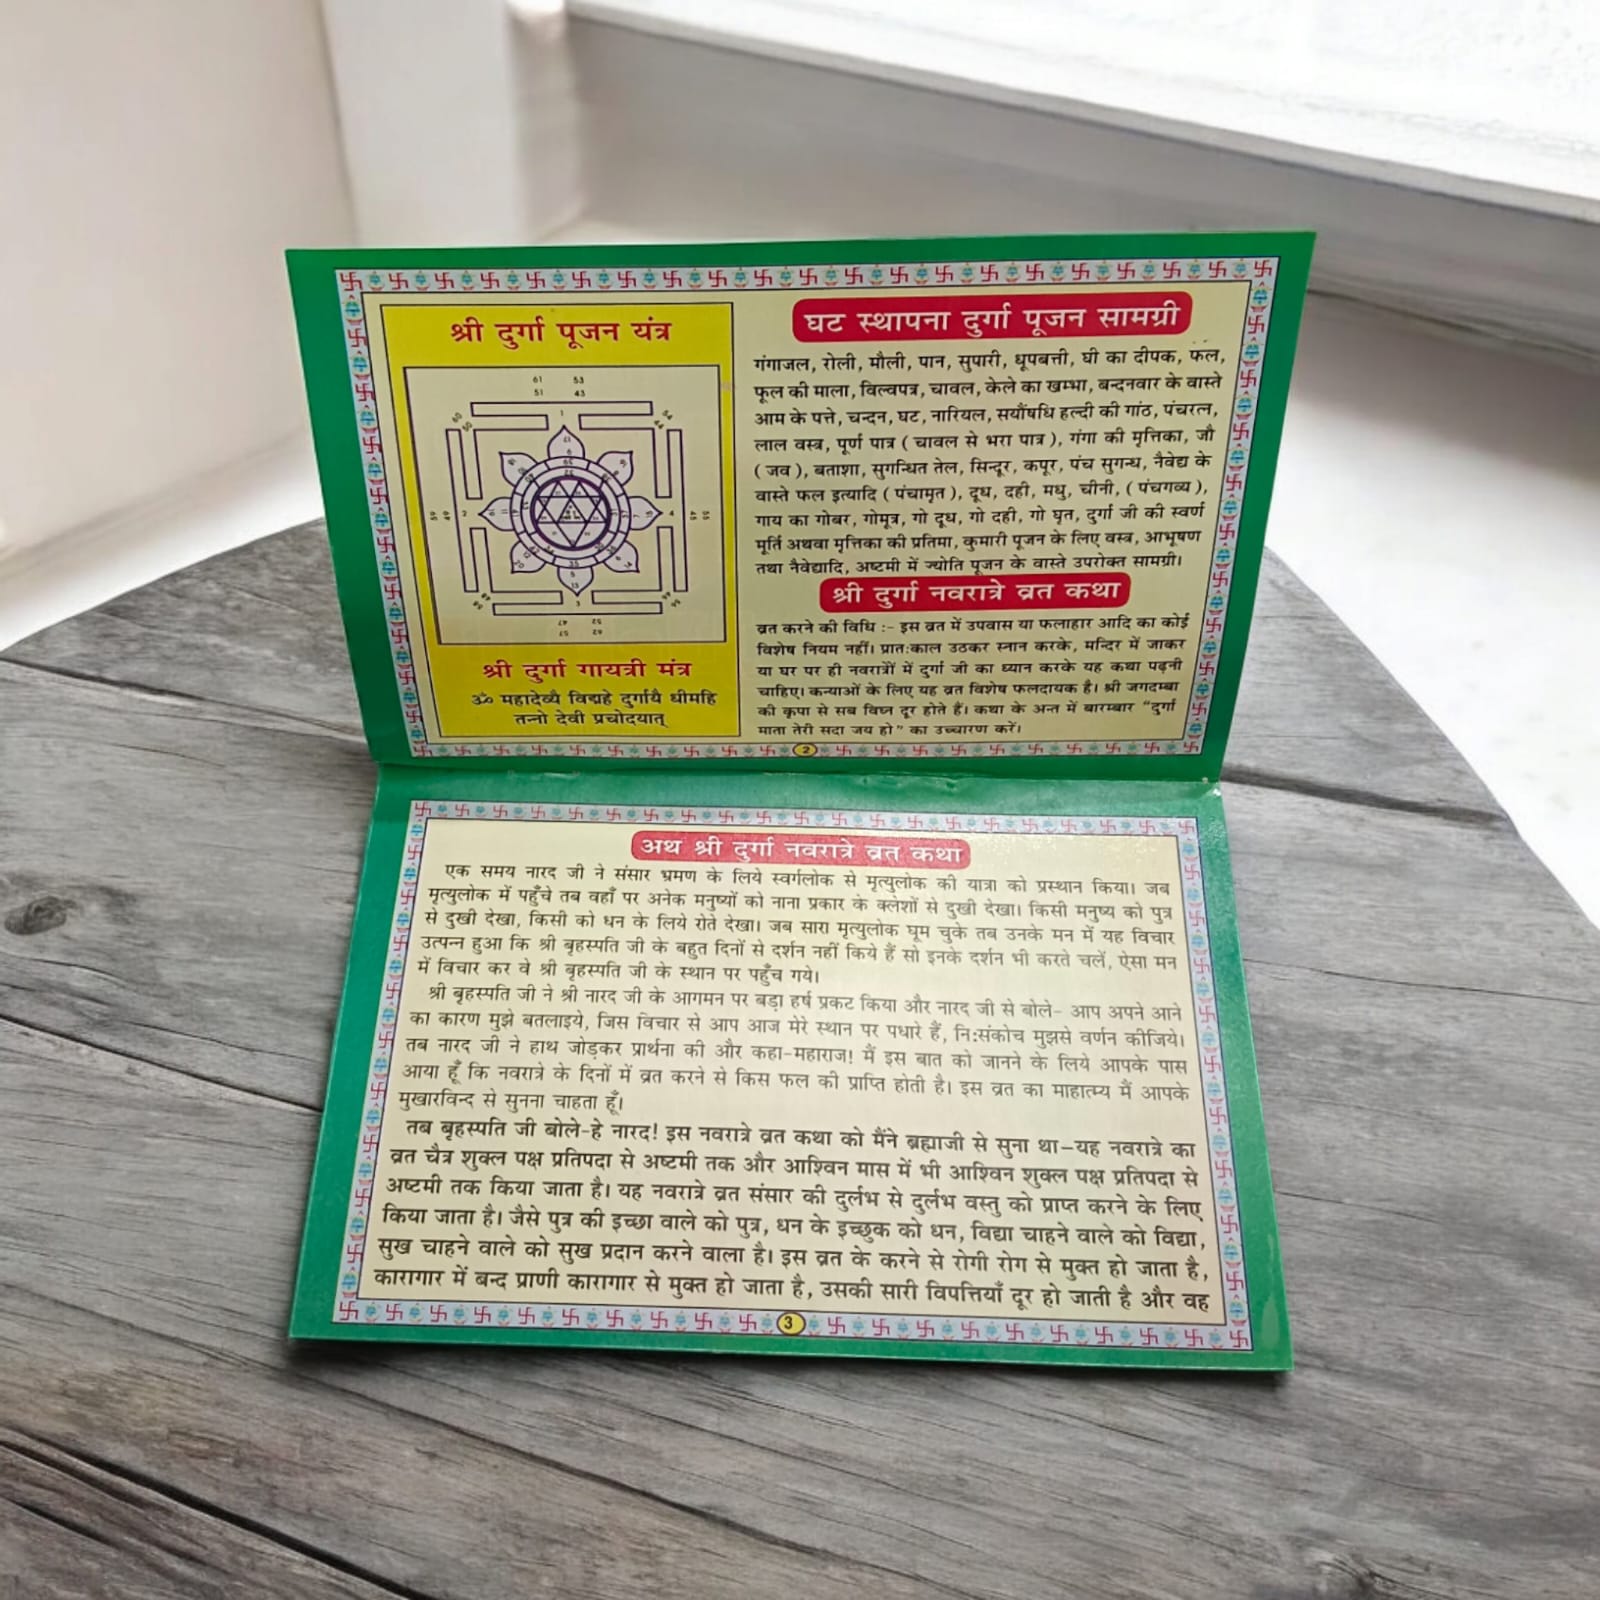 श्री दुर्गा पूजन यंत्र
61 53
51 43
श्री दुर्गा गायत्री मंत्र
ॐ महादेव्यै विद्महे दुर्गायै धीमहि
तन्नो देवी प्रचोदयात्
घट स्थापना दुर्गा पूजन सामग्री
गंगाजल, रोली, मौली, पान, सुपारी, धूपबत्ती, घी का दीपक, फल,
फूल की माला, विल्वपत्र, चावल, केले का खम्भा, बन्दनवार के वास्ते
आम के पत्ते, चन्दन, घट, नारियल, सर्यौषधि हल्दी की गांठ, पंचरत्न,
लाल वस्त्र, पूर्ण पात्र ( चावल से भरा पात्र ), गंगा की मृत्तिका, जौ
( जव ), बताशा, सुगन्धित तेल, सिन्दूर, कपूर, पंच सुगन्ध, नैवेद्य के
वास्ते फल इत्यादि ( पंचामृत ), दूध, दही, मधु, चीनी, ( पंचगव्य ),
गाय का गोबर, गोमूत्र, गो दूध, गो दही, गो घृत, दुर्गा जी की स्वर्ण
मूर्ति अथवा मृत्तिका की प्रतिमा, कुमारी पूजन के लिए वस्त्र, आभूषण
तथा नैवेद्यादि, अष्टमी में ज्योति पूजन के वास्ते उपरोक्त सामग्री।
श्री दुर्गा नवरात्रे व्रत कथा
व्रत करने की विधि :- इस व्रत में उपवास या फलाहार आदि का कोई
विशेष नियम नहीं। प्रातःकाल उठकर स्नान करके, मन्दिर में जाकर
या घर पर ही नवरात्रों में दुर्गा जी का ध्यान करके यह कथा पढ़नी
चाहिए। कन्याओं के लिए यह व्रत विशेष फलदायक है। श्री जगदम्बा
की कृपा से सब विघ्न दूर होते हैं। कथा के अन्त में बारम्बार “दुर्गा
माता तेरी सदा जय हो” का उच्चारण करें।
2
अथ श्री दुर्गा नवरात्रे व्रत कथा
एक समय नारद जी ने संसार भ्रमण के लिये स्वर्गलोक से मृत्युलोक की यात्रा को प्रस्थान किया। जब
मृत्युलोक में पहुँचे तब वहाँ पर अनेक मनुष्यों को नाना प्रकार के क्लेशों से दुखी देखा। किसी मनुष्य को पुत्र
से दुखी देखा, किसी को धन के लिये रोते देखा। जब सारा मृत्युलोक घूम चुके तब उनके मन में यह विचार
उत्पन्न हुआ कि श्री बृहस्पति जी के बहुत दिनों से दर्शन नहीं किये हैं सो इनके दर्शन भी करते चलें, ऐसा मन
में विचार कर वे श्री बृहस्पति जी के स्थान पर पहुँच गये।
श्री बृहस्पति जी ने श्री नारद जी के आगमन पर बड़ा हर्ष प्रकट किया और नारद जी से बोले- आप अपने आने
का कारण मुझे बतलाइये, जिस विचार से आप आज मेरे स्थान पर पधारे हैं, नि:संकोच मुझसे वर्णन कीजिये।
तब नारद जी ने हाथ जोड़कर प्रार्थना की और कहा-महाराज! मैं इस बात को जानने के लिये आपके पास
आया हूँ कि नवरात्रे के दिनों में व्रत करने से किस फल की प्राप्ति होती है। इस व्रत का माहात्म्य मैं आपके
मुखारविन्द से सुनना चाहता हूँ।
तब बृहस्पति जी बोले-हे नारद! इस नवरात्रे व्रत कथा को मैंने ब्रह्माजी से सुना था–यह नवरात्रे का
व्रत चैत्र शुक्ल पक्ष प्रतिपदा से अष्टमी तक और आश्विन मास में भी आश्विन शुक्ल पक्ष प्रतिपदा से
अष्टमी तक किया जाता है। यह नवरात्रे व्रत संसार की दुर्लभ से दुर्लभ वस्तु को प्राप्त करने के लिए
किया जाता है। जैसे पुत्र की इच्छा वाले को पुत्र, धन के इच्छुक को धन, विद्या चाहने वाले को विद्या,
सुख चाहने वाले को सुख प्रदान करने वाला है। इस व्रत के करने से रोगी रोग से मुक्त हो जाता है,
कारागार में बन्द प्राणी कारागार से मुक्त हो जाता है, उसकी सारी विपत्तियाँ दूर हो जाती है और वह
3